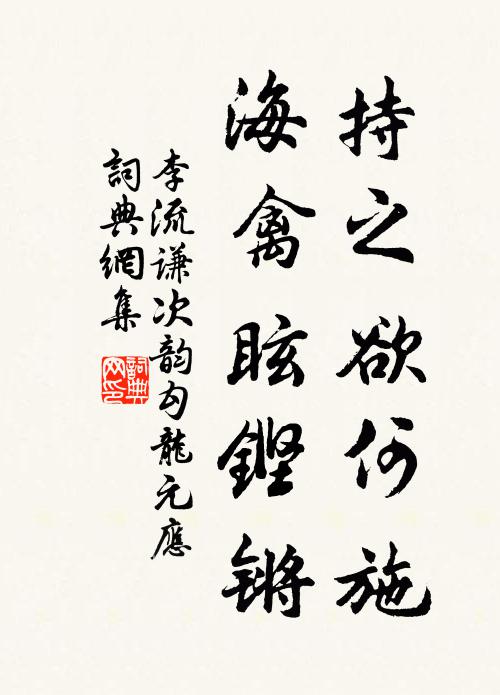 持之欲何施
海禽眩鏗锵
李流谦次韵勾龍元應
詞典網集
詞典網印